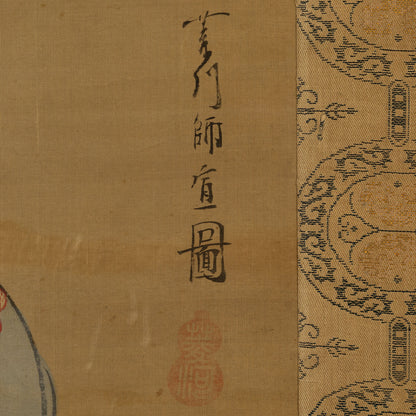 菱川師宣圖